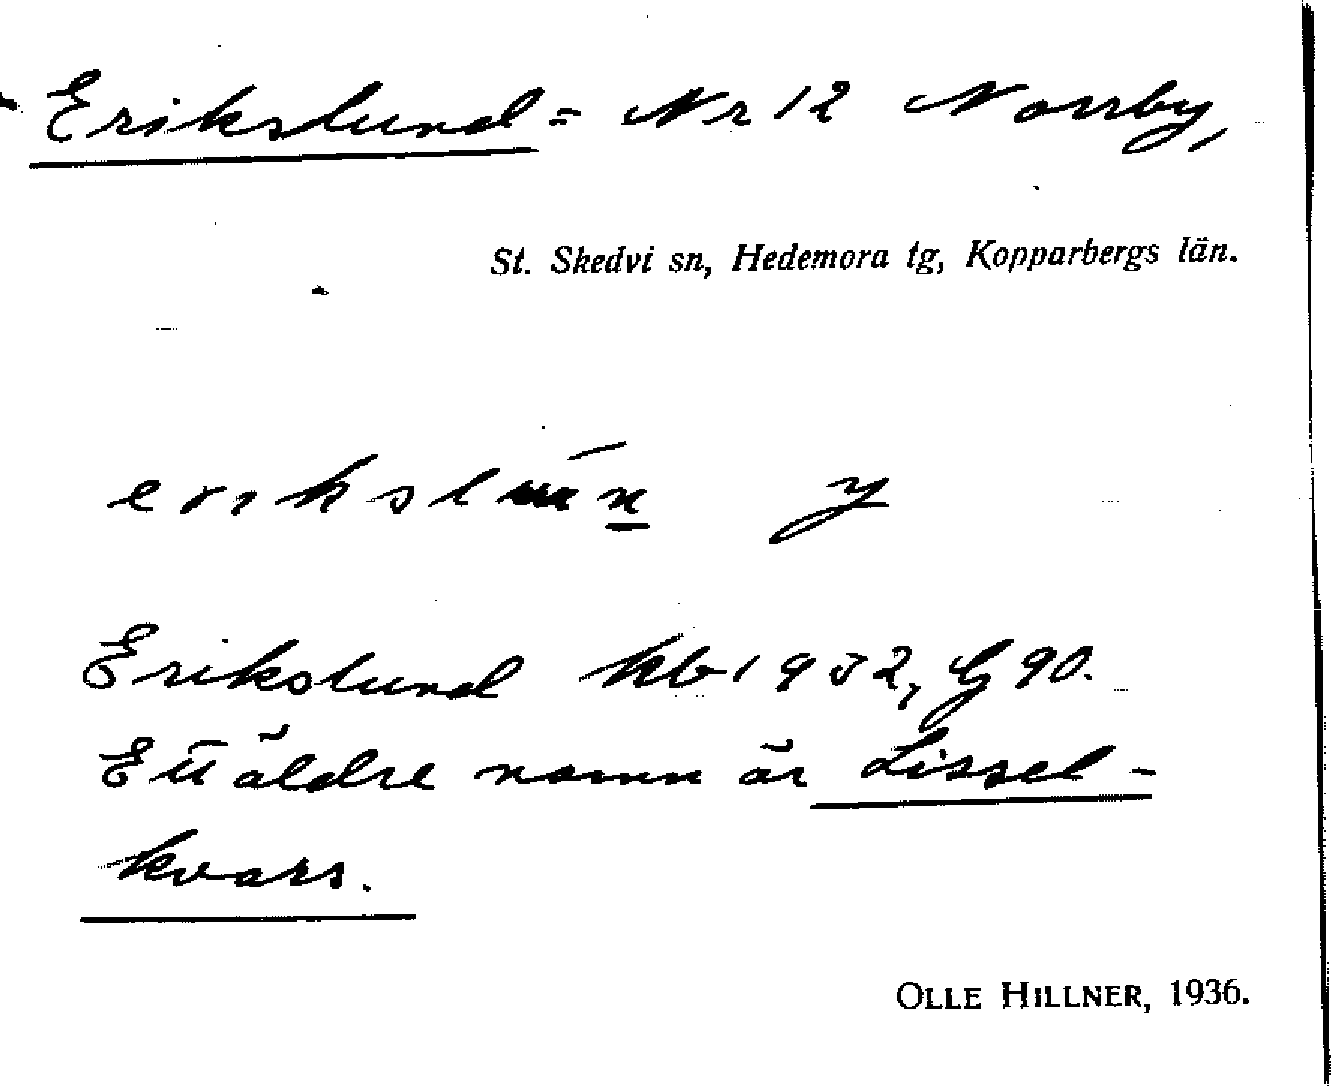 Erikslund = Nr 12 Norrby,
St. Skedvi sn, Hedemora tg, Kopparbergs län.
erikslun y
Erikslund kb 1932, G 90.
Ett äldre namn är Lissel-
kvars.
OLLE HILLNER, 1936.